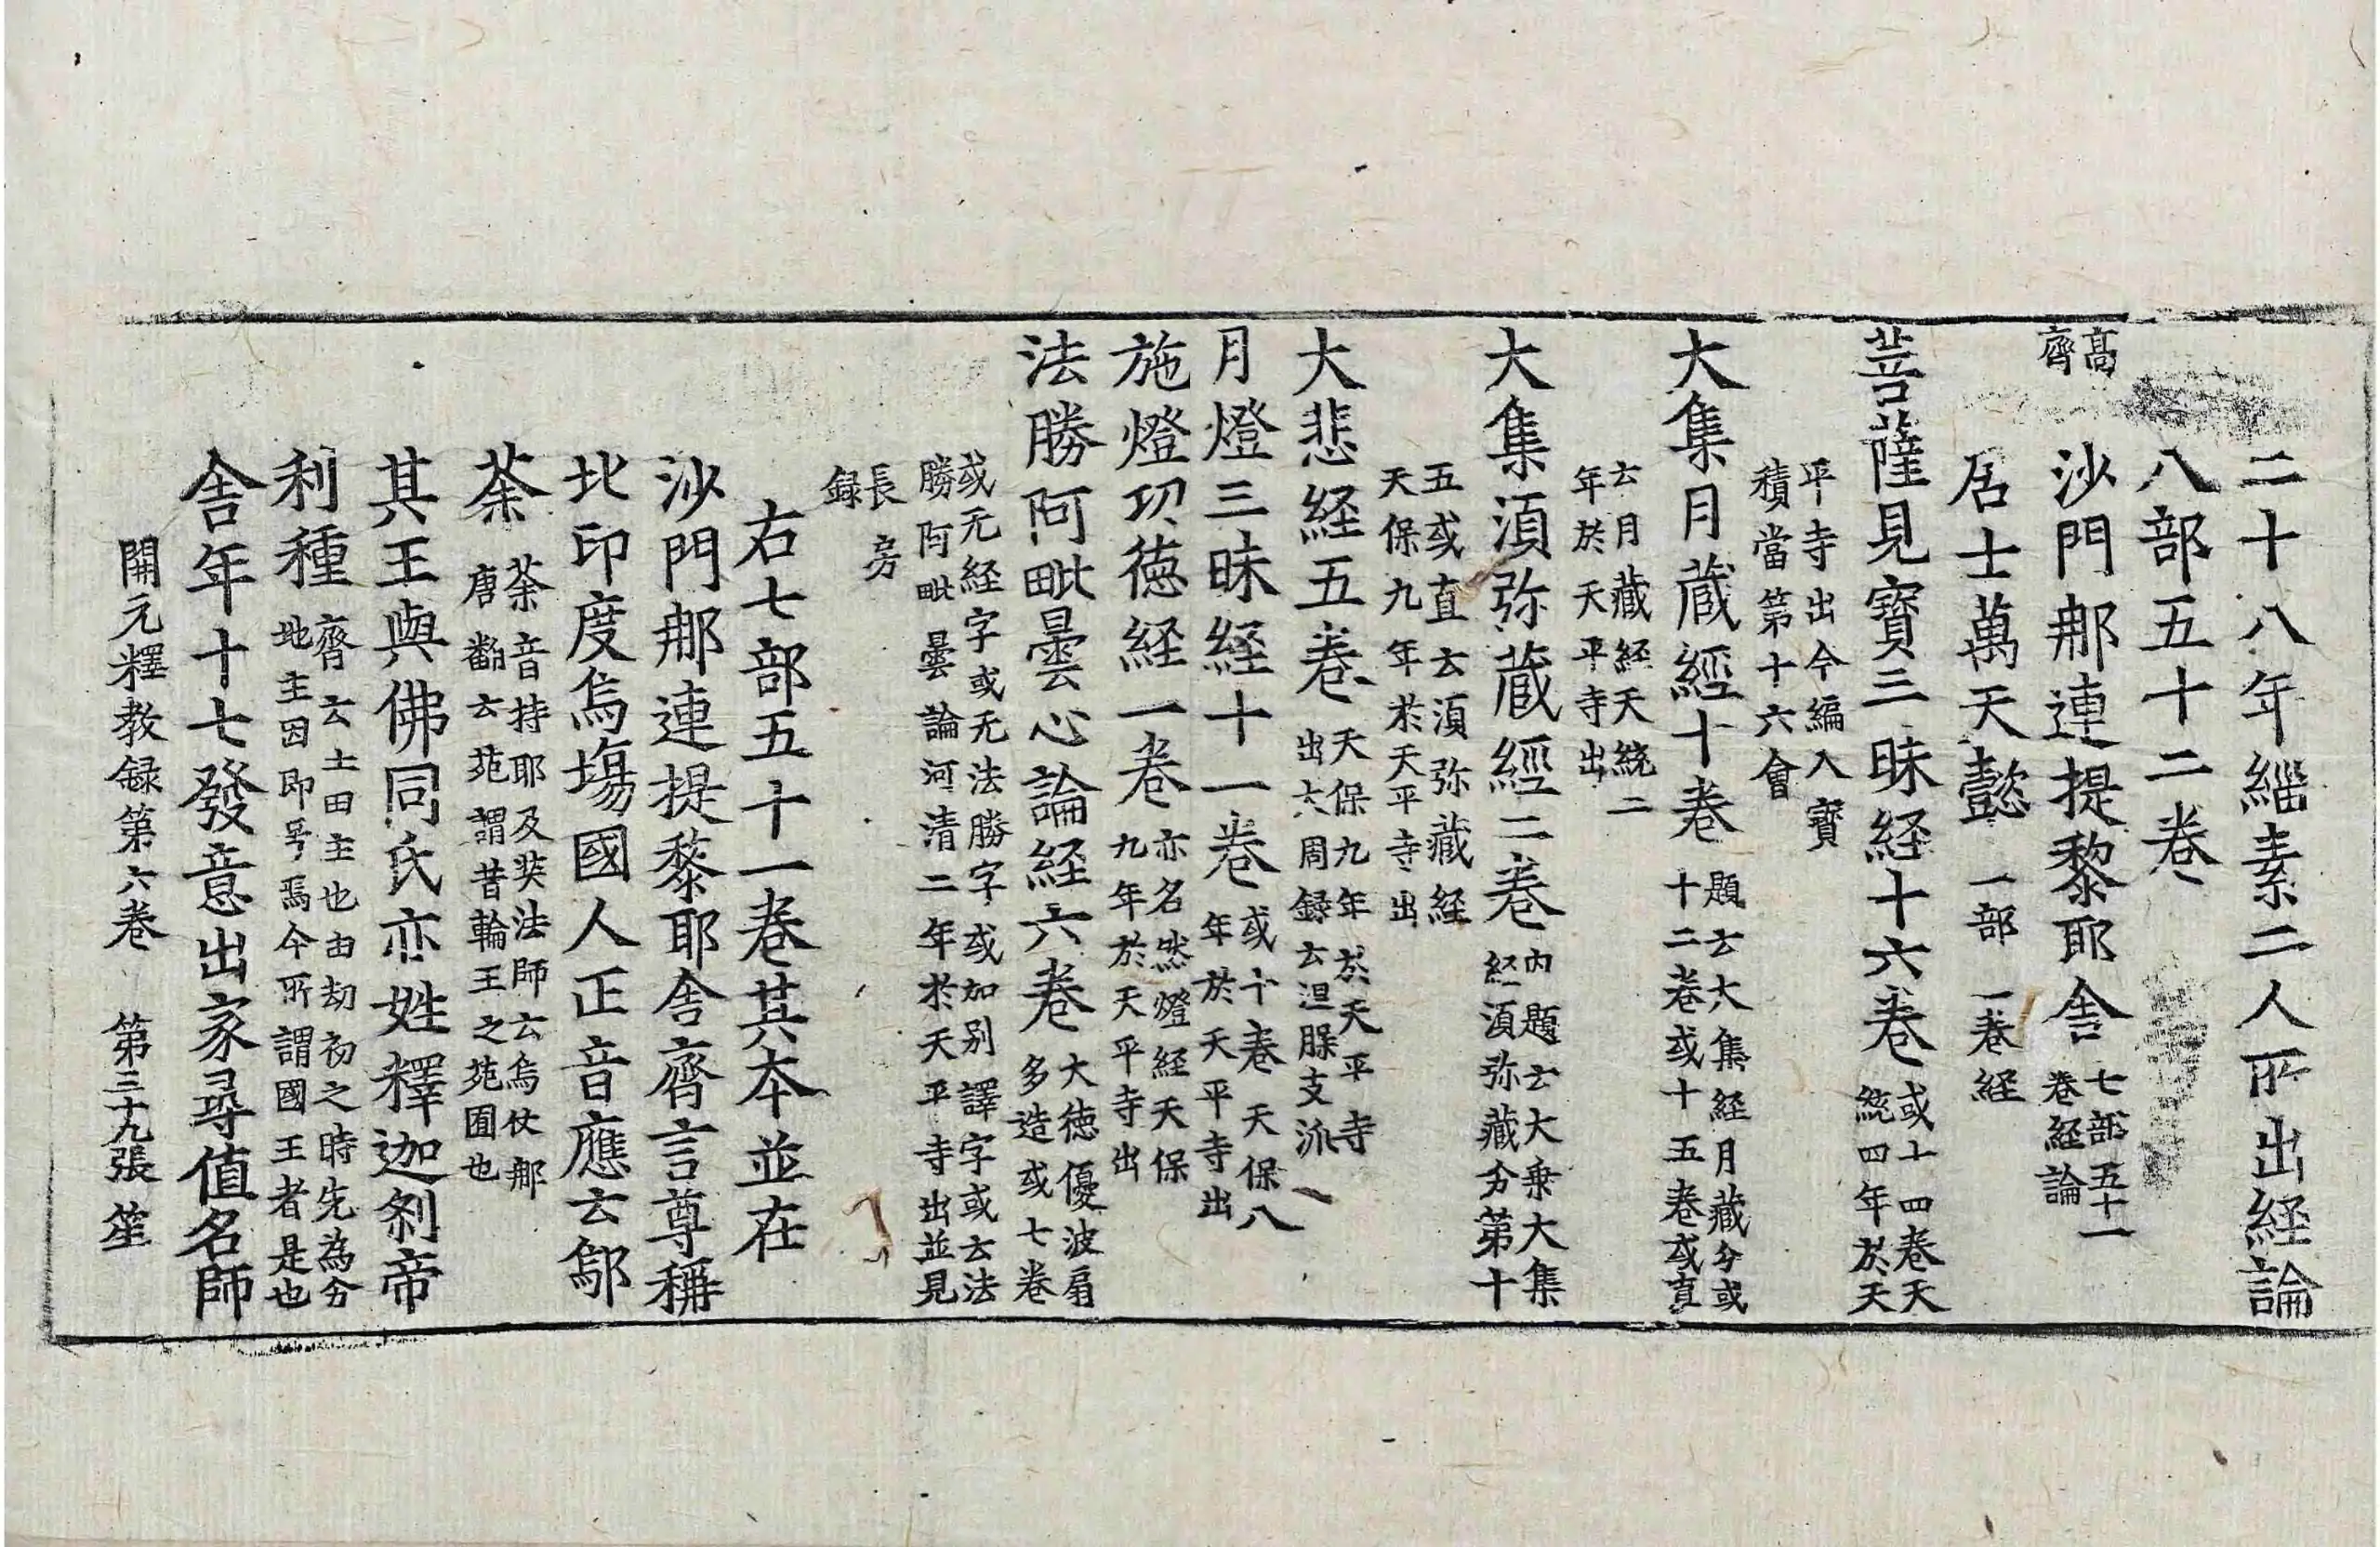 二十八年緇素二人所出経論
八部五十二卷
高
齊
沙門那連提黎耶舍
七部五十一
卷経論
居士萬天懿
一部一卷経
菩薩見寶三昧経十六卷
或十四卷天
統四年於天
平寺出今編入寶
積當第十六會
大集月蔵經十卷
題云大集経月藏分或
十二卷或十五卷或直
云月藏経天統二
年於天平寺出
大集湏弥蔵經二卷
内題云大乗大集
経湏弥藏分第十
五或直云湏弥藏経
天保九年於天平寺出
大悲経五卷
天保九年於天平寺
出六周録云涅槃支派
月燈三昧経十一卷
或十卷天保八
年於天平寺出
施燈功徳経一卷
亦名然燈経天保
九年於天平寺出
法勝阿毗曇心論経六卷
大徳優波扇
多造或七卷
或无経字或无法勝字或加别譯字或云法
勝阿毗曇論河清二年於天平寺出並見
長房
録
右七部五十一卷其夲並在
沙門那連提黎耶舍齊言尊稱
北印度烏塲國人正音應云鄔
荼
荼音持耶及奘法師云烏仗那
唐飜云苑謂昔輪王之苑囿也
其王與佛同氏亦姓釋迦刹帝
利種
齊云土田主也由劫初之時先為分
地主因即号焉今所謂國王者是也
舍年十七發意出家尋值名師
開元釋教録第六卷　第三十九張　笙